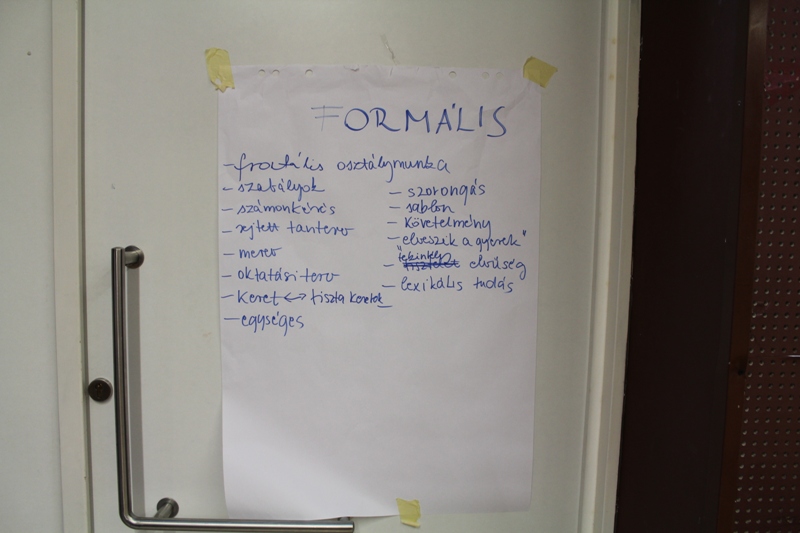 FORMÁLIS
- frontális osztálymunka
- szabályok
- számonkérés
- rejtett tanterv
- merev
- oktatási terv
- keret <-> tiszta keretek
- egységes
- szorongás
- sablon
- követelmény
- elveszik a gyerek"
- "tekintély elvűség
- lexikális tudás